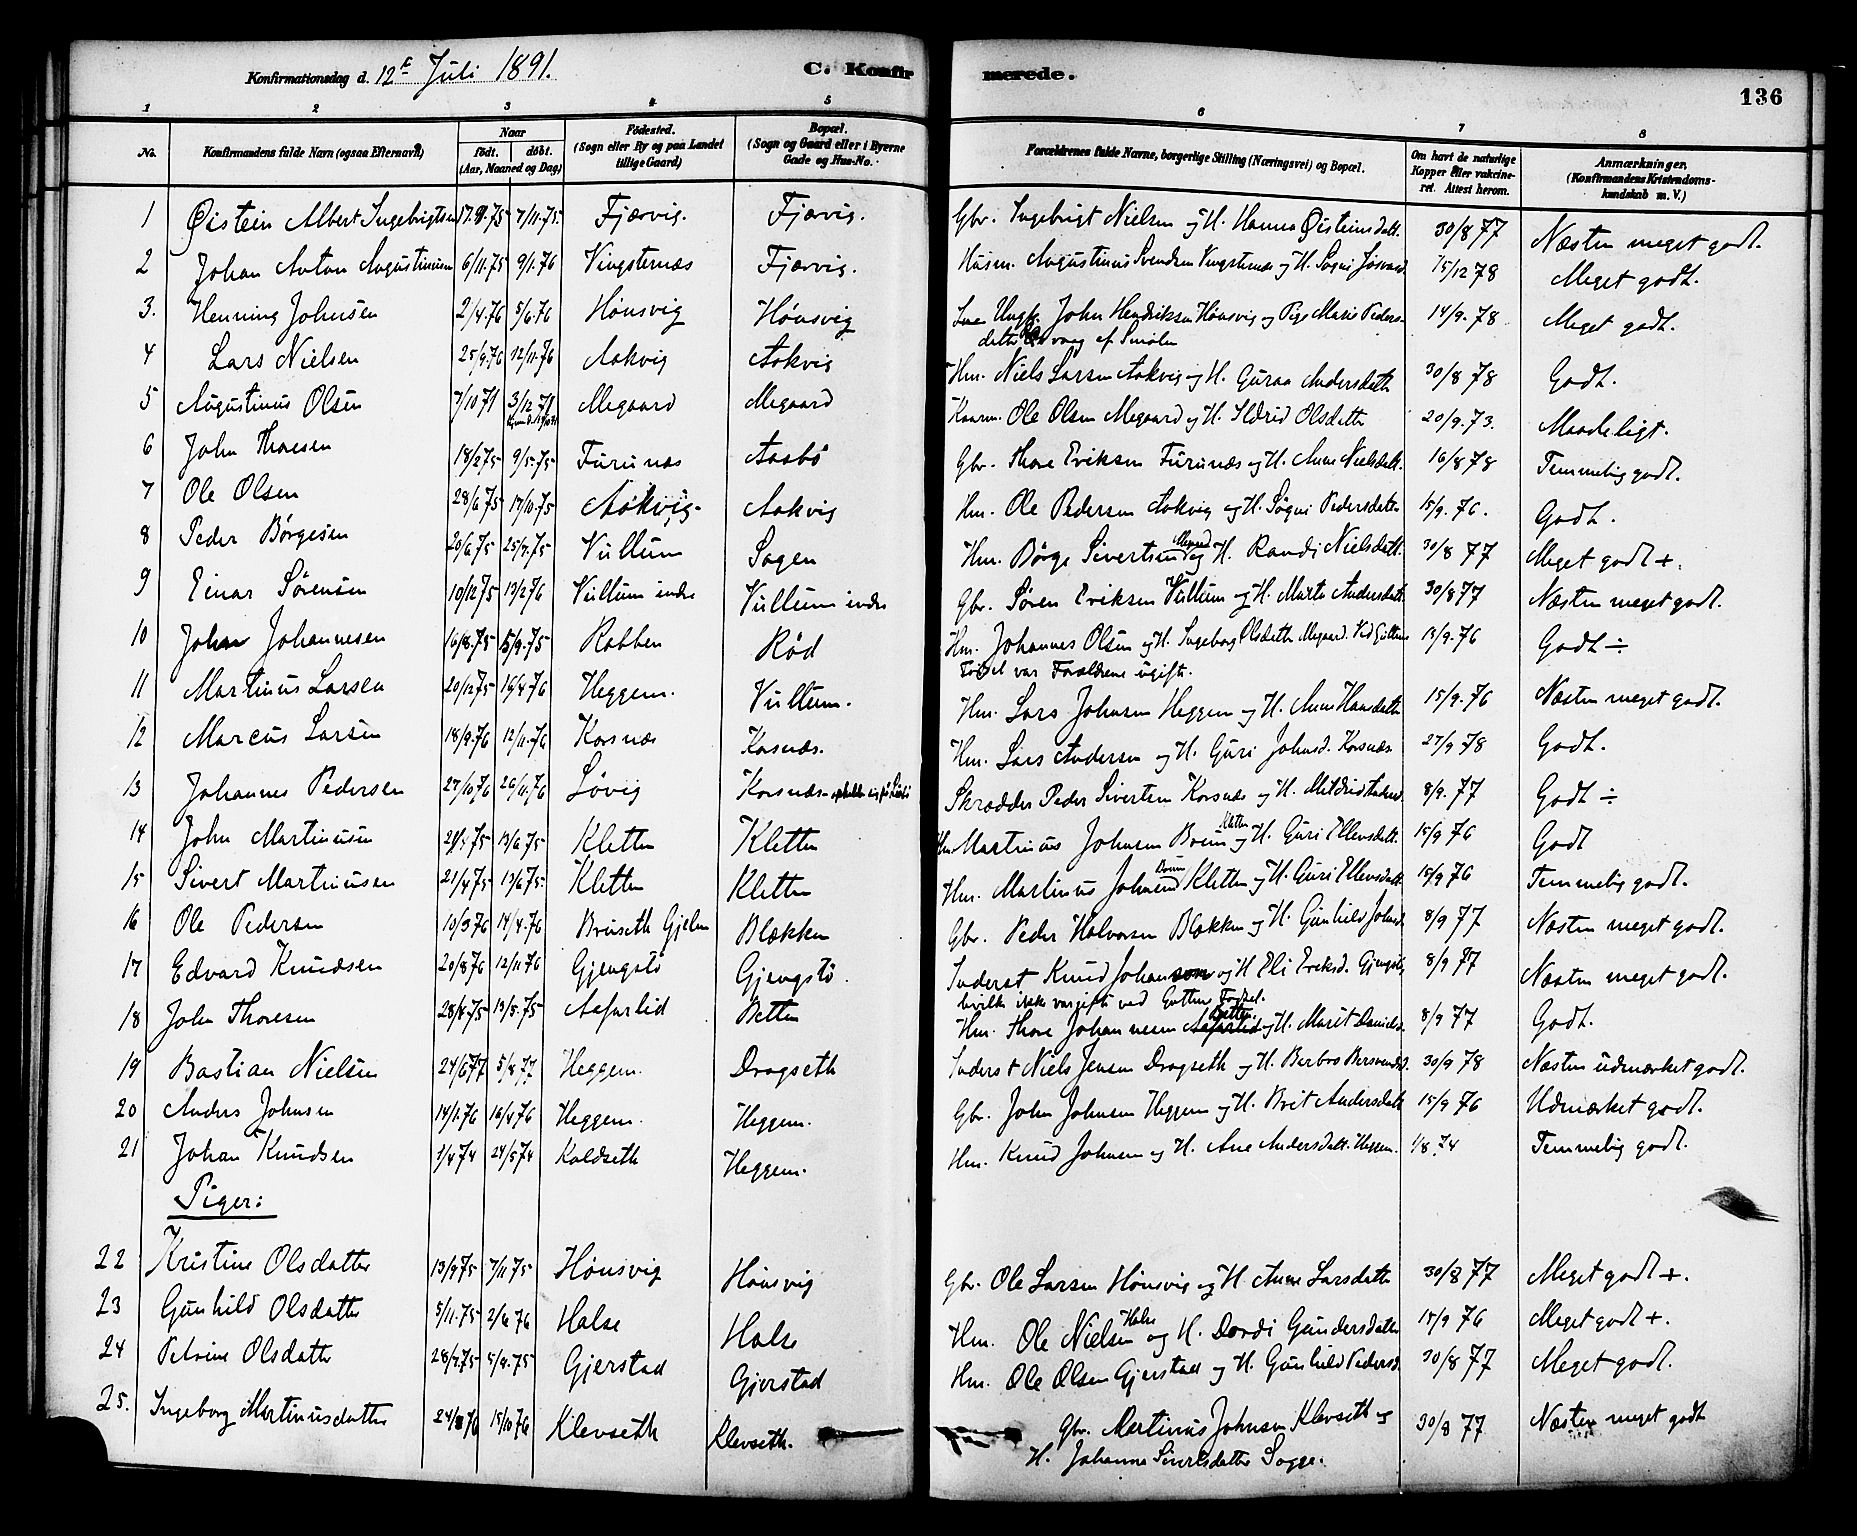 Konfirmationsdag d. 12te Juli 1891. C. Konfirmerede. 136
1 2 3 4 5 6 7 8
No. Konfirmandens fulde Navn (ogsaa Efternavn) Naar født. døbt. (Aar, Maaned og Dag) Fødested. (Sogn eller By og paa Landet tillige Gaard) Bopæl. (Sogn og Gaard eller i Byerne Gade og Hus-No. Forældrenes fulde Navne, borgerlige Stilling (Næringsvei) og Bopæl. Om havt de naturlige Kopper eller vakcineret. Attest herom. Anmærkninger. (Konfirmandens Kristendomskundskab m. V.)
1 Øistein Albert Ingebrigtsen 17.9.75 7/11.75 Fjærvig. Fjærvig. Gbr. Ingebrigt Nielsen og H. Hanna Øisteinsdatt. 30/8 77 Næsten meget godt.
2 Johan Anton Augustinusen 6/11.75 9/1.76 Vingsternæs Fjærvig. Husm. Augustinus Svendsen Vingsternæs og H. 15/12 78 Meget godt.
3. Henning Johnsen 2/4.76 5/6.76 Hønsvig Hønsvig Ungk. John Hendriksen Hønsvig og Pige Marie Peders-
datter vaag af Smølen 14/9.78 Meget godt.
4 Lars Nielsen 25/9.76 12/11.76 Aakvig Aakvig Hm. Niels Larsen Aakvig og H. Guraa Andersdatter 30/8 78 Godt.
5 Augustinus Olsen 7/10 71 3/12 71 Megaard Megaard Kaarm. Ole Olsen Megaard og H. Sildrid Olsdatter 20/9.73. Maadeligt.
6 John Thoresen 18/2 75 9/5.75 Furunæs Aasbø Gbr. Thore Eriksen Furunæs og H. Ane Nielsdatt. 16/8 78 Temmelig godt.
7 Ole Olsen 28/6 75 17/10.75 Aakvig Aakvig Hm. Ole Pedersen Aakvig og H. Søgni Pedersdatter 15/9.76. Godt.
8 Peder Børgesen 20/6 75 25/7.75 Vullum Sagen Hm. Børge Sivertsen og H. Randi Nielsdatt. 30/8 77 Meget godt +.
9 Einar Sørensen 10/12 75 13/2 76 Vullum indre Vullum indre Gbr. Søren Eriksen Vullum og H. Marta Andersdatt. 30/8 77 Næsten meget godt.
10 Johan Johannesen 16/8.75 5/9.75 Rabben Rød Hm. Johannes Olsen og H. Ingeborg Olsdatter Megaard. Ved Guttens
Fødsel var Forældrene ugifte. 13/9.76 Godt ÷
11 Martinus Larsen 20/12 75 16/4 76 Heggem. Vullum. Hm. Lars Johnsen Heggem og H. Ane Hansdatter 15/9.76 Næsten meget godt.
12 Marcus Larsen 18/9.76 12/11.76 Korsnæs Korsnæs. Hm. Lars Andersen og H. Guri Johnsd. Korsnæs. 27/9 78 Godt.
13 Johannes Pedersen 27/10 76 26/11.76 Løvig Korsnæs Skrædder Peder Sivertsen Korsnæs og H. 8/9.77 Godt ÷
14 John Martinusen 21/4 75 13/6 75 Kletten Kletten Hm Martinus Johnsen Bruun Kletten og H. Guri Ellevsdatt. 15/9 76 Godt
15 Sivert Martinusen 21/4 75 13/6 75 Kletten Kletten Hm. Martinus Johnsen Bruun Kletten og H. Guri Ellevsdatt. 15/9 76 Temmelig godt.
16 Ole Pedersen 10/3 76 14/4.76 Bruseth Blekken Gbr. Peder Halvorsen Blekken og H. Gunhild Johnsd. 8/9 77 Næsten meget godt.
17 Edvard Knudsen 20/8 76 12/11 76 Gjengstø Gjengstø. Inderst Knud Johansen og H Eli Eriksd. Gjengstø
hvilke ikke var gifte ved Guttens Fødsel. 8/9 77 Næsten meget godt.
18 John Thoresen 28/4.75 13/5.75 Aafarlid Betten Hm. Thore Johannesen Aafarlid Betten. og H. Marit Danielsd. 8/9 77 Godt.
19 Bastian Nielsen 24/6 77 5/8 77 Heggem. Dragseth Inderst Niels Jensen Dragseth og H. Berbro Bersvendsd. 30/9 78 Næsten udmærket godt.
20 Anders Johnsen 14/1.76 16/4 76 Heggem. Heggem. Gbr. John Johnsen Heggem og H. Brit Andersdatt 15/9 76 Udmærket godt.
21 Johan Knudsen 1/4 74 24/5 74 Koldseth Heggem. Hm. Knud Johnsen og H. Ane Andersdatt. Heggem. 1/8.74 Temmelig godt.
Piger:
22 Kristine Olsdatter 13/9 75 7/11 75 Hønsvig Hønsvig Gbr. Ole Larsen Hønsvig og H. Anne Larsdatter 30/8 77 Meget godt +.
23 Gunhild Olsdatter 5/11.75 2/6 76 Halse Halse Hm. Ole Nielsen Halse og H. Dordi Gundersdatter 15/9 76 Meget godt +.
24 Petrine Olsdatter 28/7.75 5/9.75 Gjerstad Gjerstad Hm. Ole Olsen Gjerstad og H. Gunhild Pedersd. 30/8 77 Meget godt.
25. Ingeborg Martinusdatter 15/10 76 Klevseth Klevseth. Gbr. Martinus Johnsen Klevseth og
H. Johanna Sivertsdatter Sogge. 30/8 77 Næsten meget godt